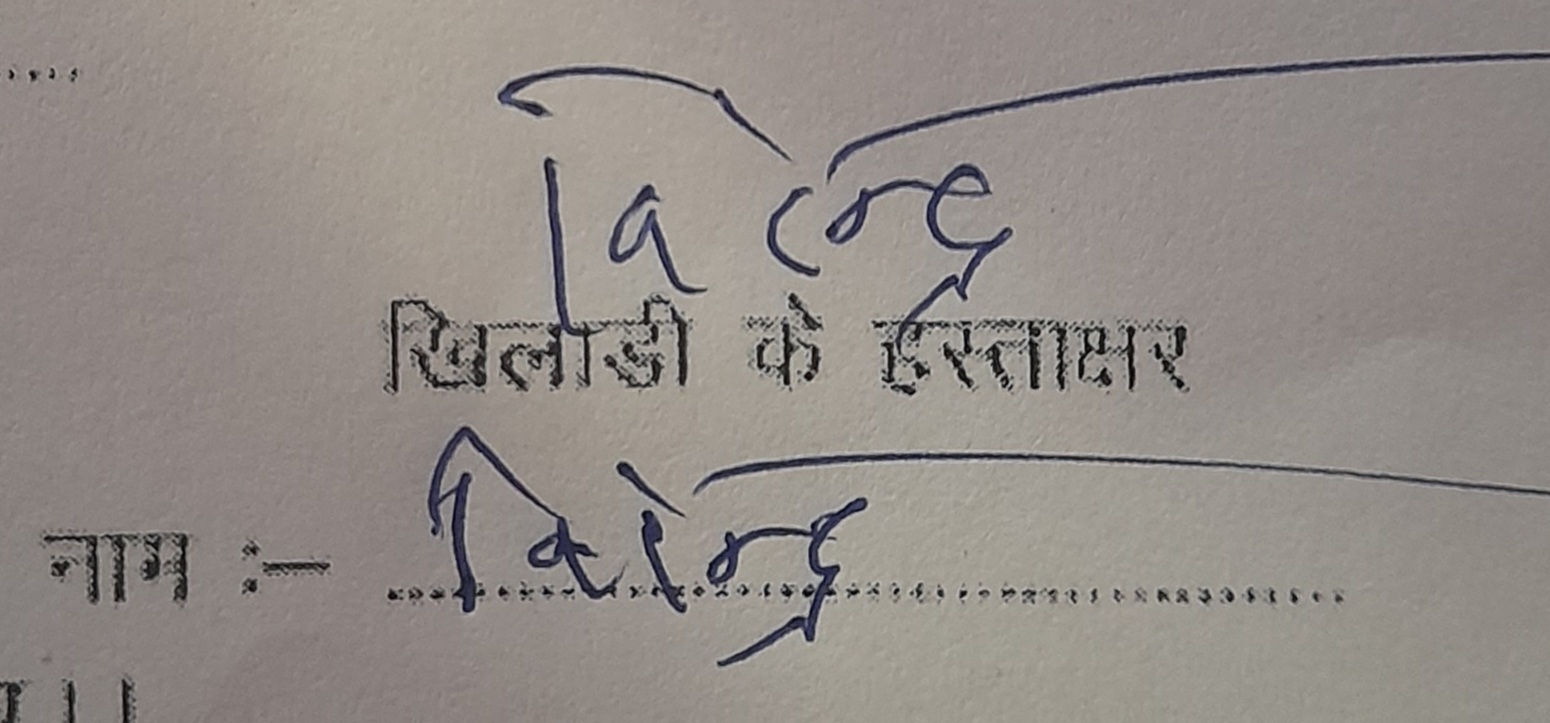 विरेन्द्र
खिलाडी के हस्ताक्षर
नाम :- विरेन्द्र